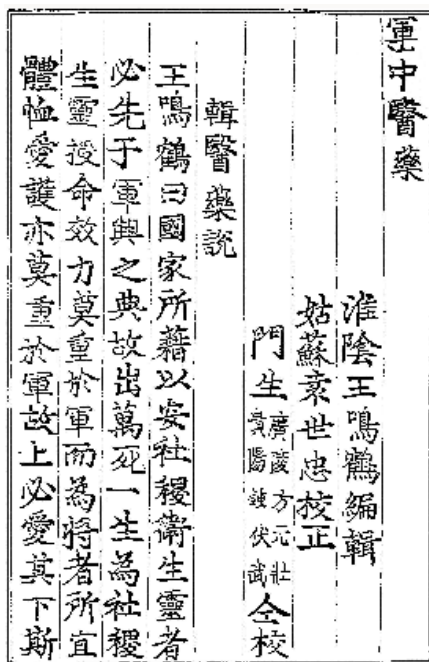 軍中醫藥
淮陰王鳴鶴編輯
姑蘇袁世忠校正
門生廣陵方元壯貴陽鍾伏武仝校
輯醫藥説
王鳴鶴曰國家所藉以安社稷衛生靈者
必先于軍興之典故出萬死一生為社稷
生靈授命效力莫重於軍而為將者所宜
體恤愛護亦莫重於軍故上必愛其下斯